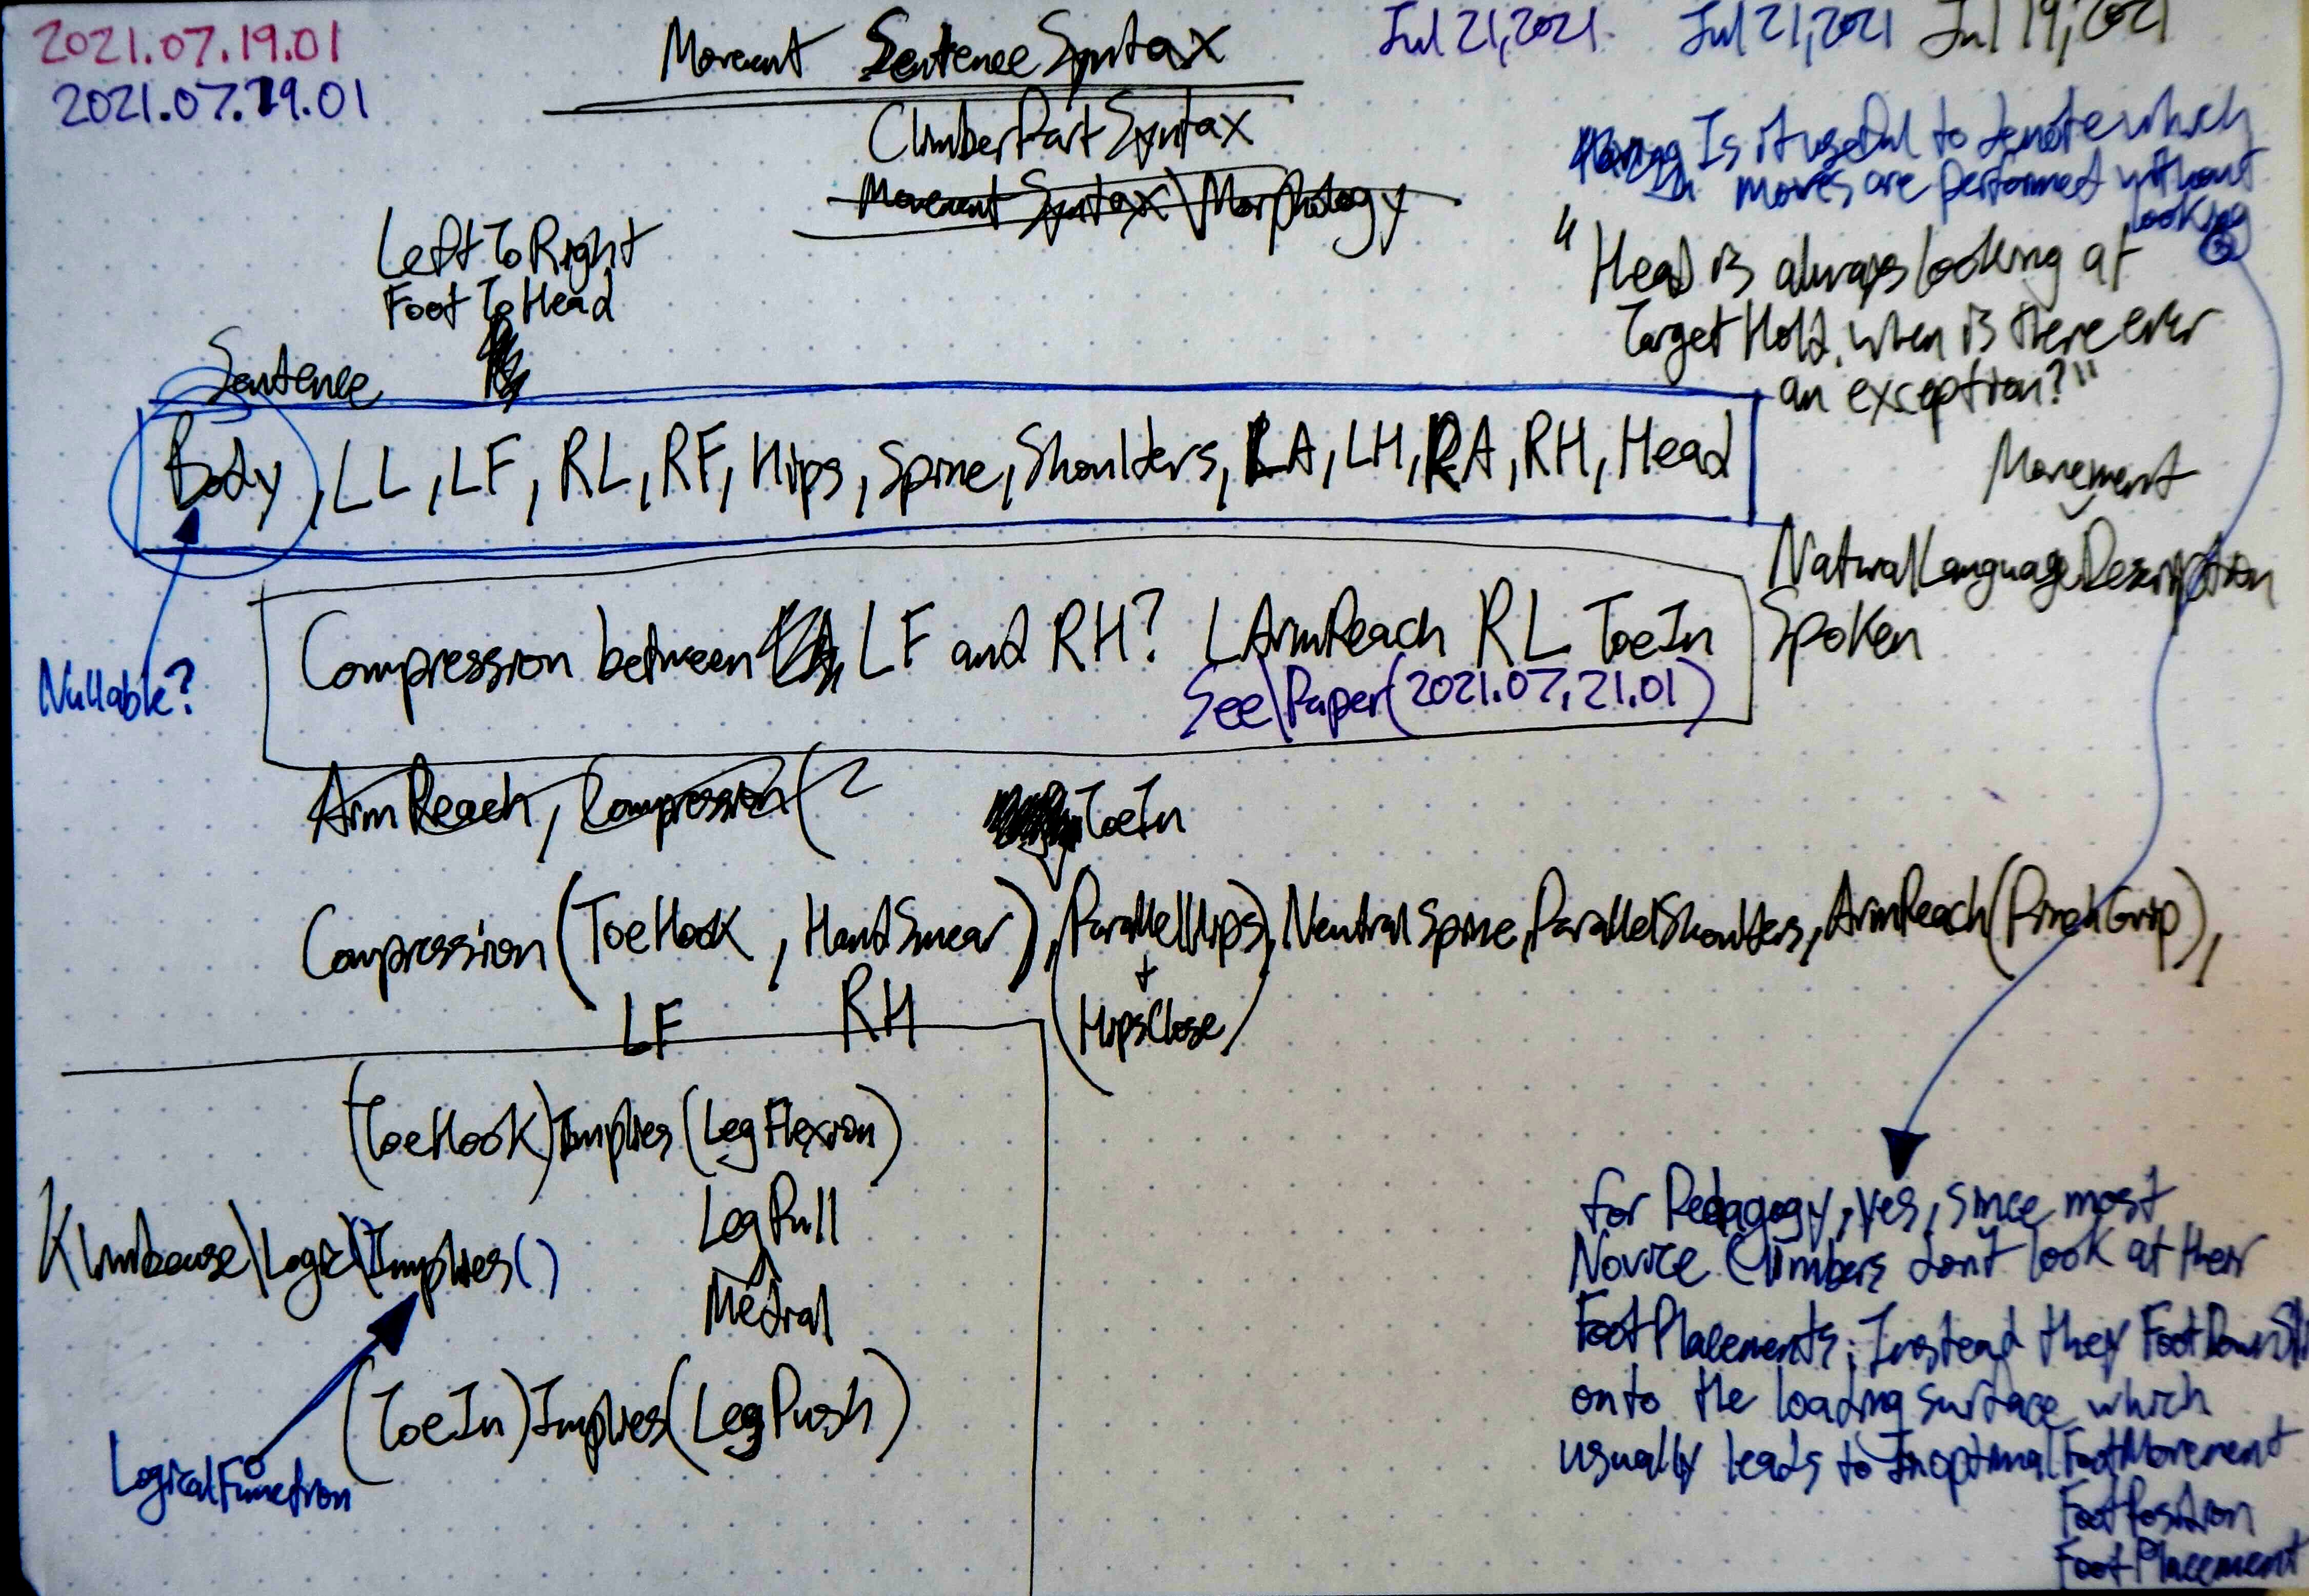 2021.07.19.01
2021.07.19.01
Movement SentenceSyntax
Jul 21, 2021
Jul 21, 2021
Jul 19, 2021
ClimberPartSyntax
Movement Syntax\Morphology
Is it useful to denote which
moves are performed without
looking
"Head is always looking at
Target Hold, when is there ever
an exception?"
LeftToRight
FootToHead
Sentence
Body, LL, LF, RL, RF, Hips, Spine, Shoulders, LA, LH, RA, RH, Head
Movement
NaturalLanguageDescription
Spoken
Nullable?
Compression between LF and RH? LArmReach RL ToeIn
See\Paper(2021.07.21.01)
ArmReach, Compression(
ToeIn
Compression(ToeHook, HandSmear), (ParallelHips), NeutralSpine, ParallelShoulders, ArmReach(PinchGrip),
+
HipsClose)
LF RH
(ToeHook)Implies(LegFlexion)
LegPull
Medial
Klimbeuse\Logic\Implies()
(ToeIn)Implies(LegPush)
LogicalFunction
for Pedagogy, yes, since most
Novice Climbers don't look at their
FootPlacements; Instead they
onto the loading surface which
usually leads to InoptimalFootMovement
FootPosition
FootPlacement